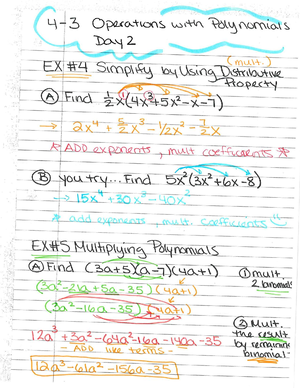 4-3 Operations with Polynomials
Day 2
EX #4 Simplify by Using Distributive Property
(mult.)
Ⓐ Find ½x(4x³+5x²-x-7)
→ 2x⁴ + 5/2x³ - 1/2x² - 7/2x
* ADD exponents, mult coefficients *
Ⓑ you try... Find 5x²(3x²+6x-8)
→ 15x⁴+30x³-40x²
* add exponents, mult. coefficients
EX#5 Multiplying Polynomials
Ⓐ Find (3a+5)(a-7)(4a+1)
① mult. 2 binomials
(3a²-21a+5a-35)(4a+1)
(3a²-16a-35)(4a+1)
② Mult. the result by remaining binomial
12a³+3a²-64a²-16a-140a-35
- ADD like terms -
12a³-61a²-156a-35